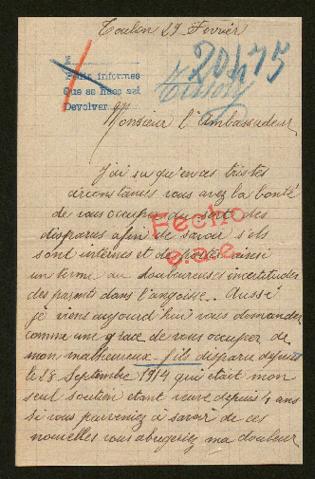 Toulon 29 Fevrier
20475
Pidis informes
Que se hace así
Devolver
Monsieur l'Ambassadeur
J'ai su qu'en ces tristes
circonstances vous avez la bonté
de vous occuper du sort des
disparus afin de savoir s'ils
sont internés et ainsi
un terme au douloureuses incertitudes
des parents dans l'angoisse.. Aussi
je viens aujourd'hui vous demander
comme une grace de vous occuper de
mon malheureux fils disparu depuis
le 28 Septembre 1914 qui était mon
seul soutien etant veuve depuis 4 ans
si vous parveniez à savoir de ces
nouvelles vous abregeriez ma douleur
Fecho